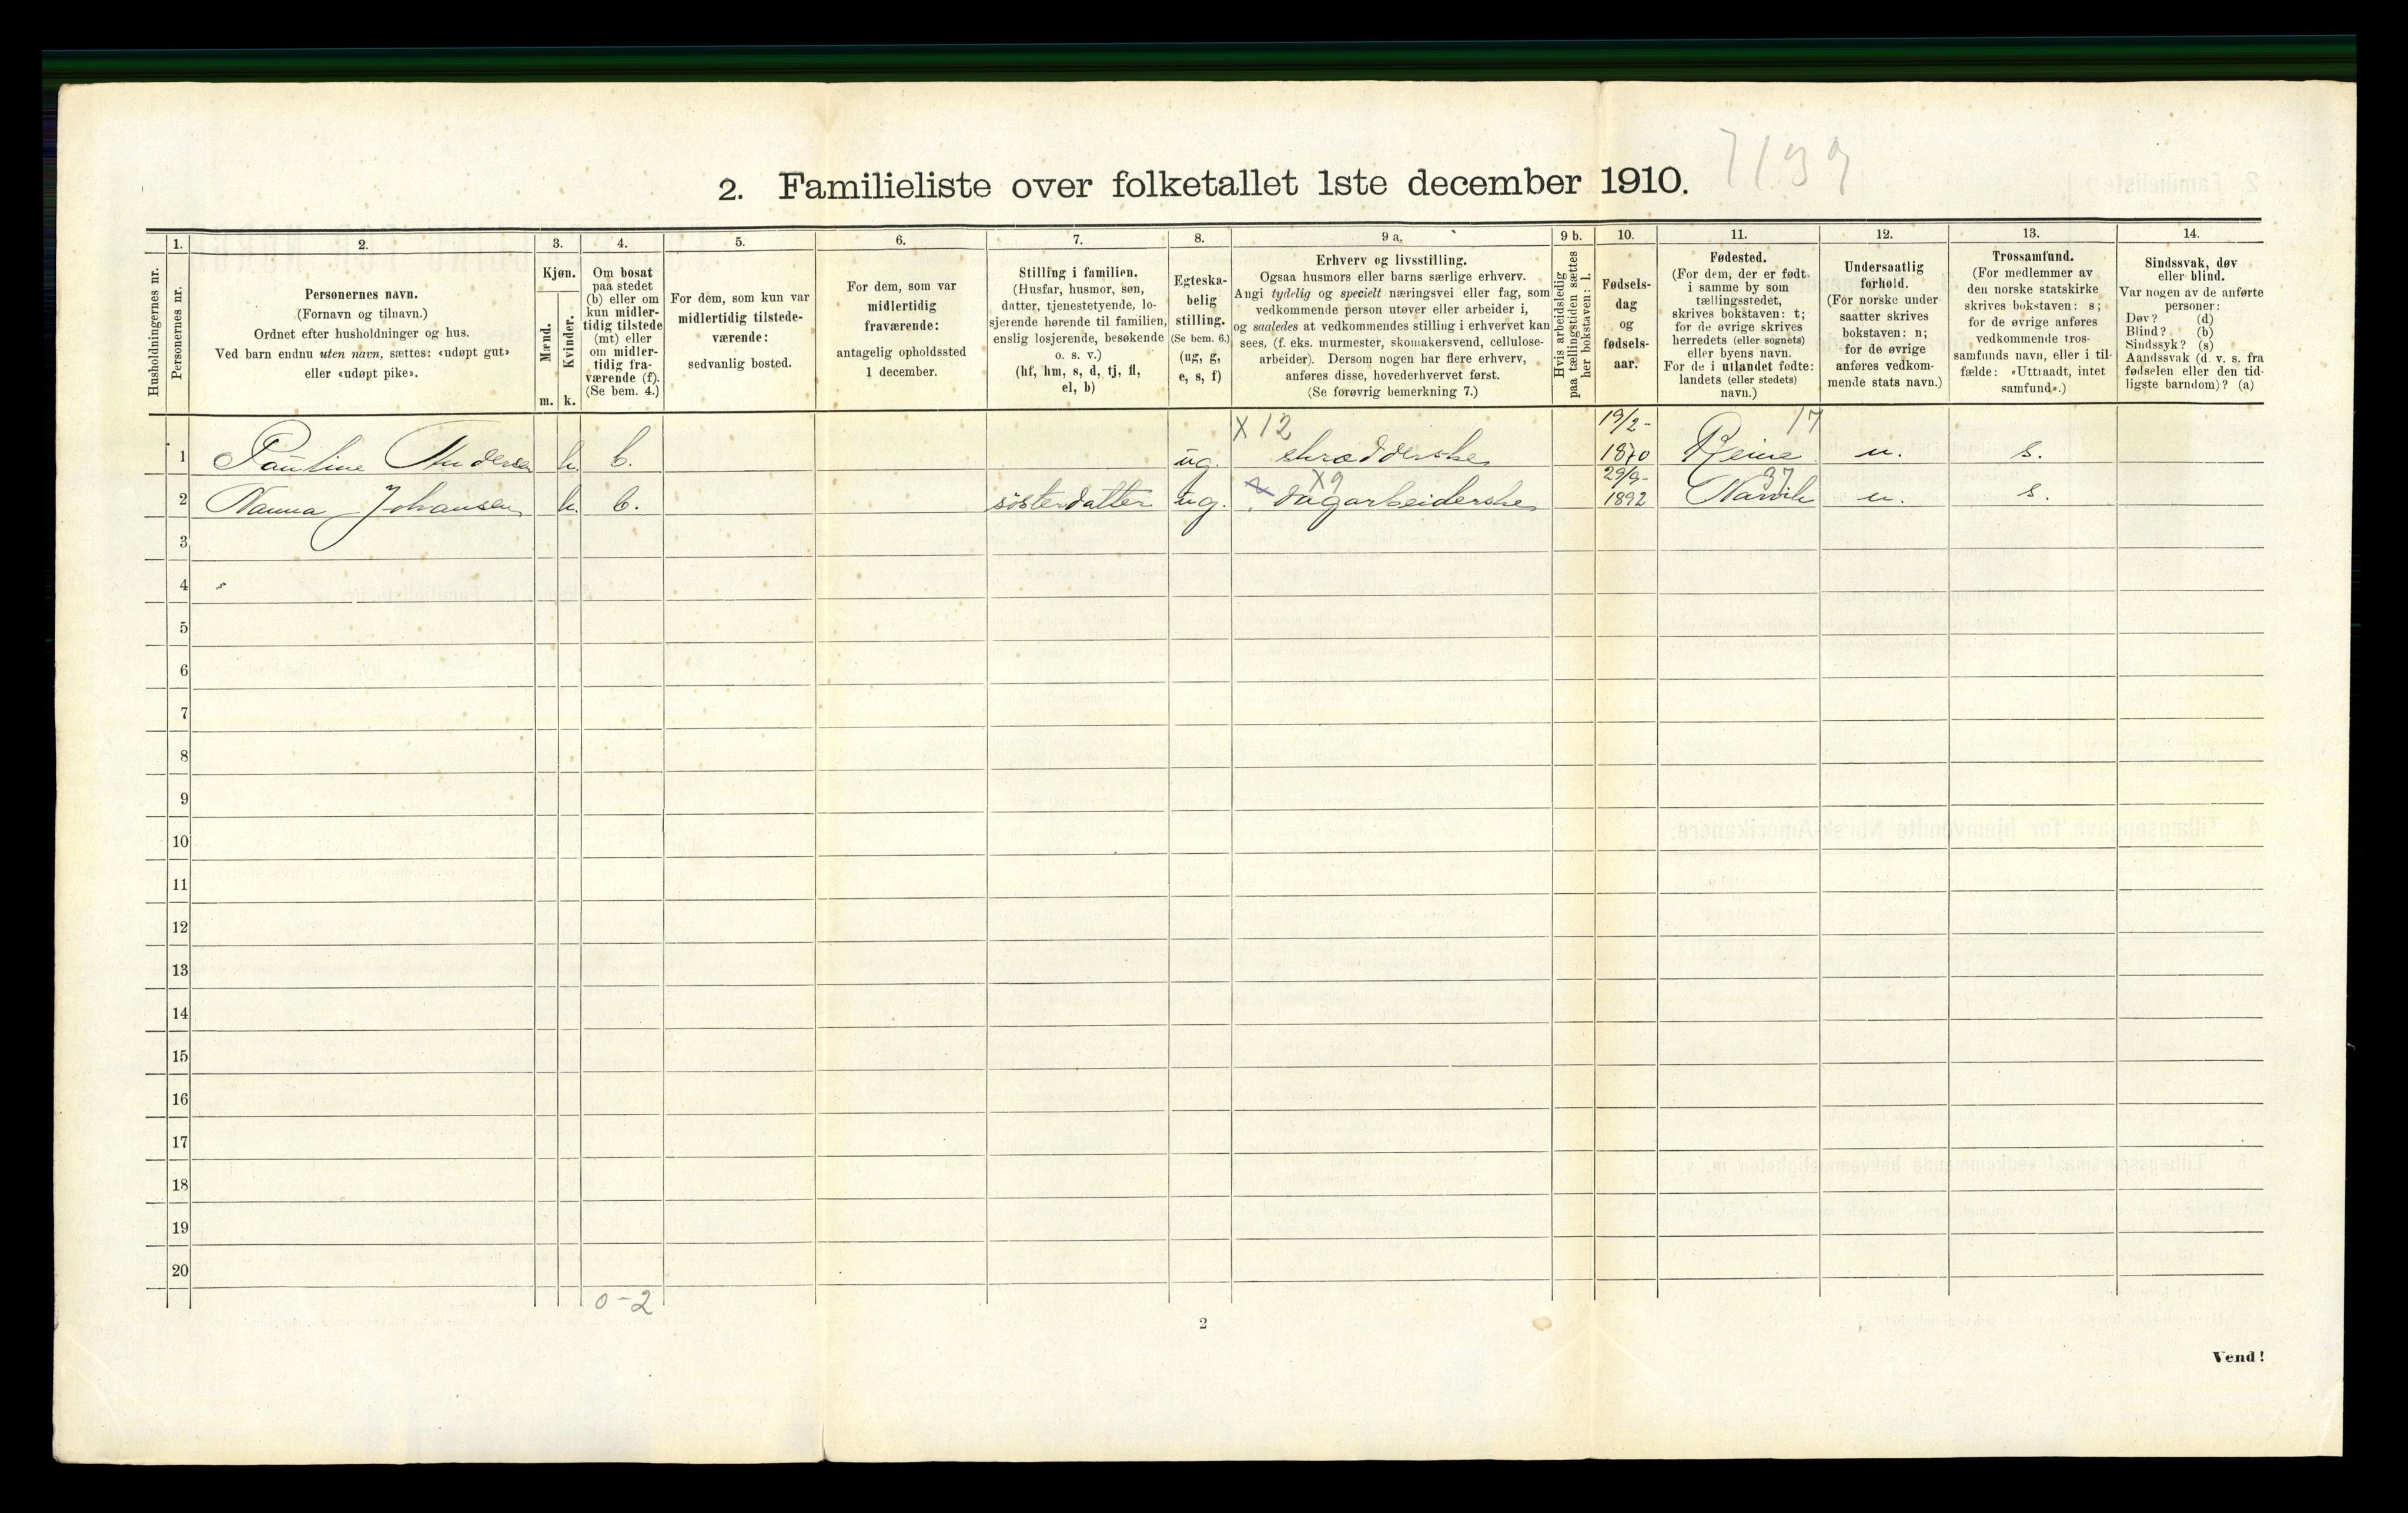 2. Familieliste over folketallet 1ste december 1910.
7139
Husholdningernes nr.
1.
Personernes nr.
2.
Personernes navn.
(Fornavn og tilnavn.)
Ordnet efter husholdninger og hus.
Ved barn endnu uten navn, sættes: «udøpt gut»
eller «udøpt pike».
3.
Kjøn.
Mænd.
Kvinder.
m. k.
4.
Om bosat
paa stedet
(b) eller om
kun midler-
tidig tilstede
(mt) eller
om midler-
tidig fra-
værende (f).
(Se bem. 4.)
5.
For dem, som kun var
midlertidig tilstede-
værende:
sedvanlig bosted.
6.
For dem, som var
midlertidig
fraværende:
antagelig opholdssted
1 december.
7.
Stilling i familien.
(Husfar, husmor, søn,
datter, tjenestetyende, lo-
sjerende hørende til familien,
enslig losjerende, besøkende
o. s. v.)
(hf, hm, s, d, tj, fl,
el, b)
8.
Egteska-
belig
stilling.
(Se bem. 6.)
(ug, g,
e, s, f)
9 a.
Erhverv og livsstilling.
Ogsaa husmors eller barns særlige erhverv.
Angi tydelig og specielt næringsvei eller fag, som
vedkommende person utøver eller arbeider i,
og saaledes at vedkommendes stilling i erhvervet kan
sees, (f. eks. murmester, skomakersvend, cellulose-
arbeider). Dersom nogen har flere erhverv,
anføres disse, hovederhvervet først.
(Se forøvrig bemerkning 7.)
9 b.
Hvis arbeidsledig
paa tællingstiden sættes
her bokstaven: l.
10.
Fødsels-
dag
og
fødsels-
aar.
11.
Fødested.
(For dem, der er født
i samme by som
tællingsstedet,
skrives bokstaven: t;
for de øvrige skrives
herredets (eller sognets)
eller byens navn.
For de i utlandet fødte:
landets (eller stedets)
navn.)
12.
Undersaatlig
forhold.
(For norske under-
saatter skrives
bokstaven: n;
for de øvrige
anføres vedkom-
mende stats navn.)
13.
Trossamfund.
(For medlemmer av
den norske statskirke
skrives bokstaven: s;
for de øvrige anføres
vedkommende tros-
samfunds navn, eller i til-
fælde: «Uttraadt, intet
samfund».)
14.
Sindssvak, døv
eller blind.
Var nogen av de anførte
personer:
Døv? (d)
Blind? (b)
Sindssyk? (s)
Aandssvak (d. v. s. fra
fødselen eller den tid-
ligste barndom)? (a)
X 12 19/2- 17
1 Pauline Andersen k. b. ug. skrædderske 1870 Reine n. s.
X9 29/9- 37
2 Nanna Johansen k. b. søsterdatter ug. dagarbeiderske 1892 Narvik n. s.
3
4
5
6
7
8
9
10
11
12
13
14
15
16
17
18
19
20
0-2
2
Vend!